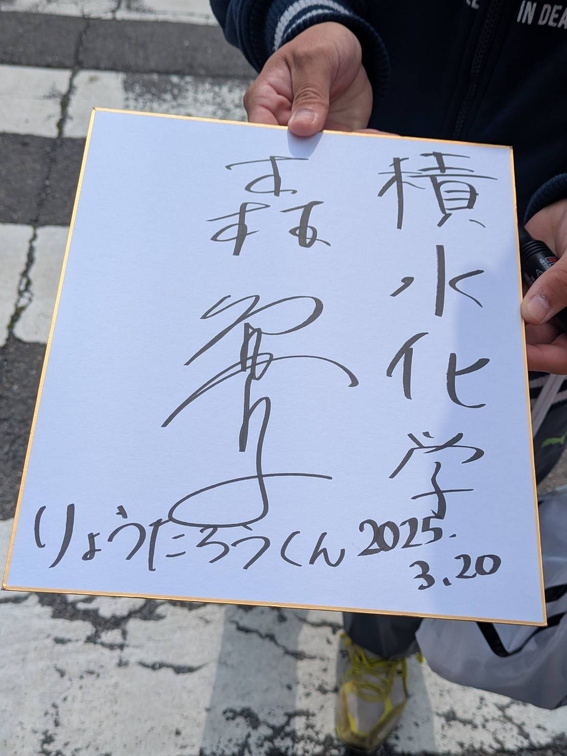 積水化学
森
りょうたろうくん
2025.
3.20
IN